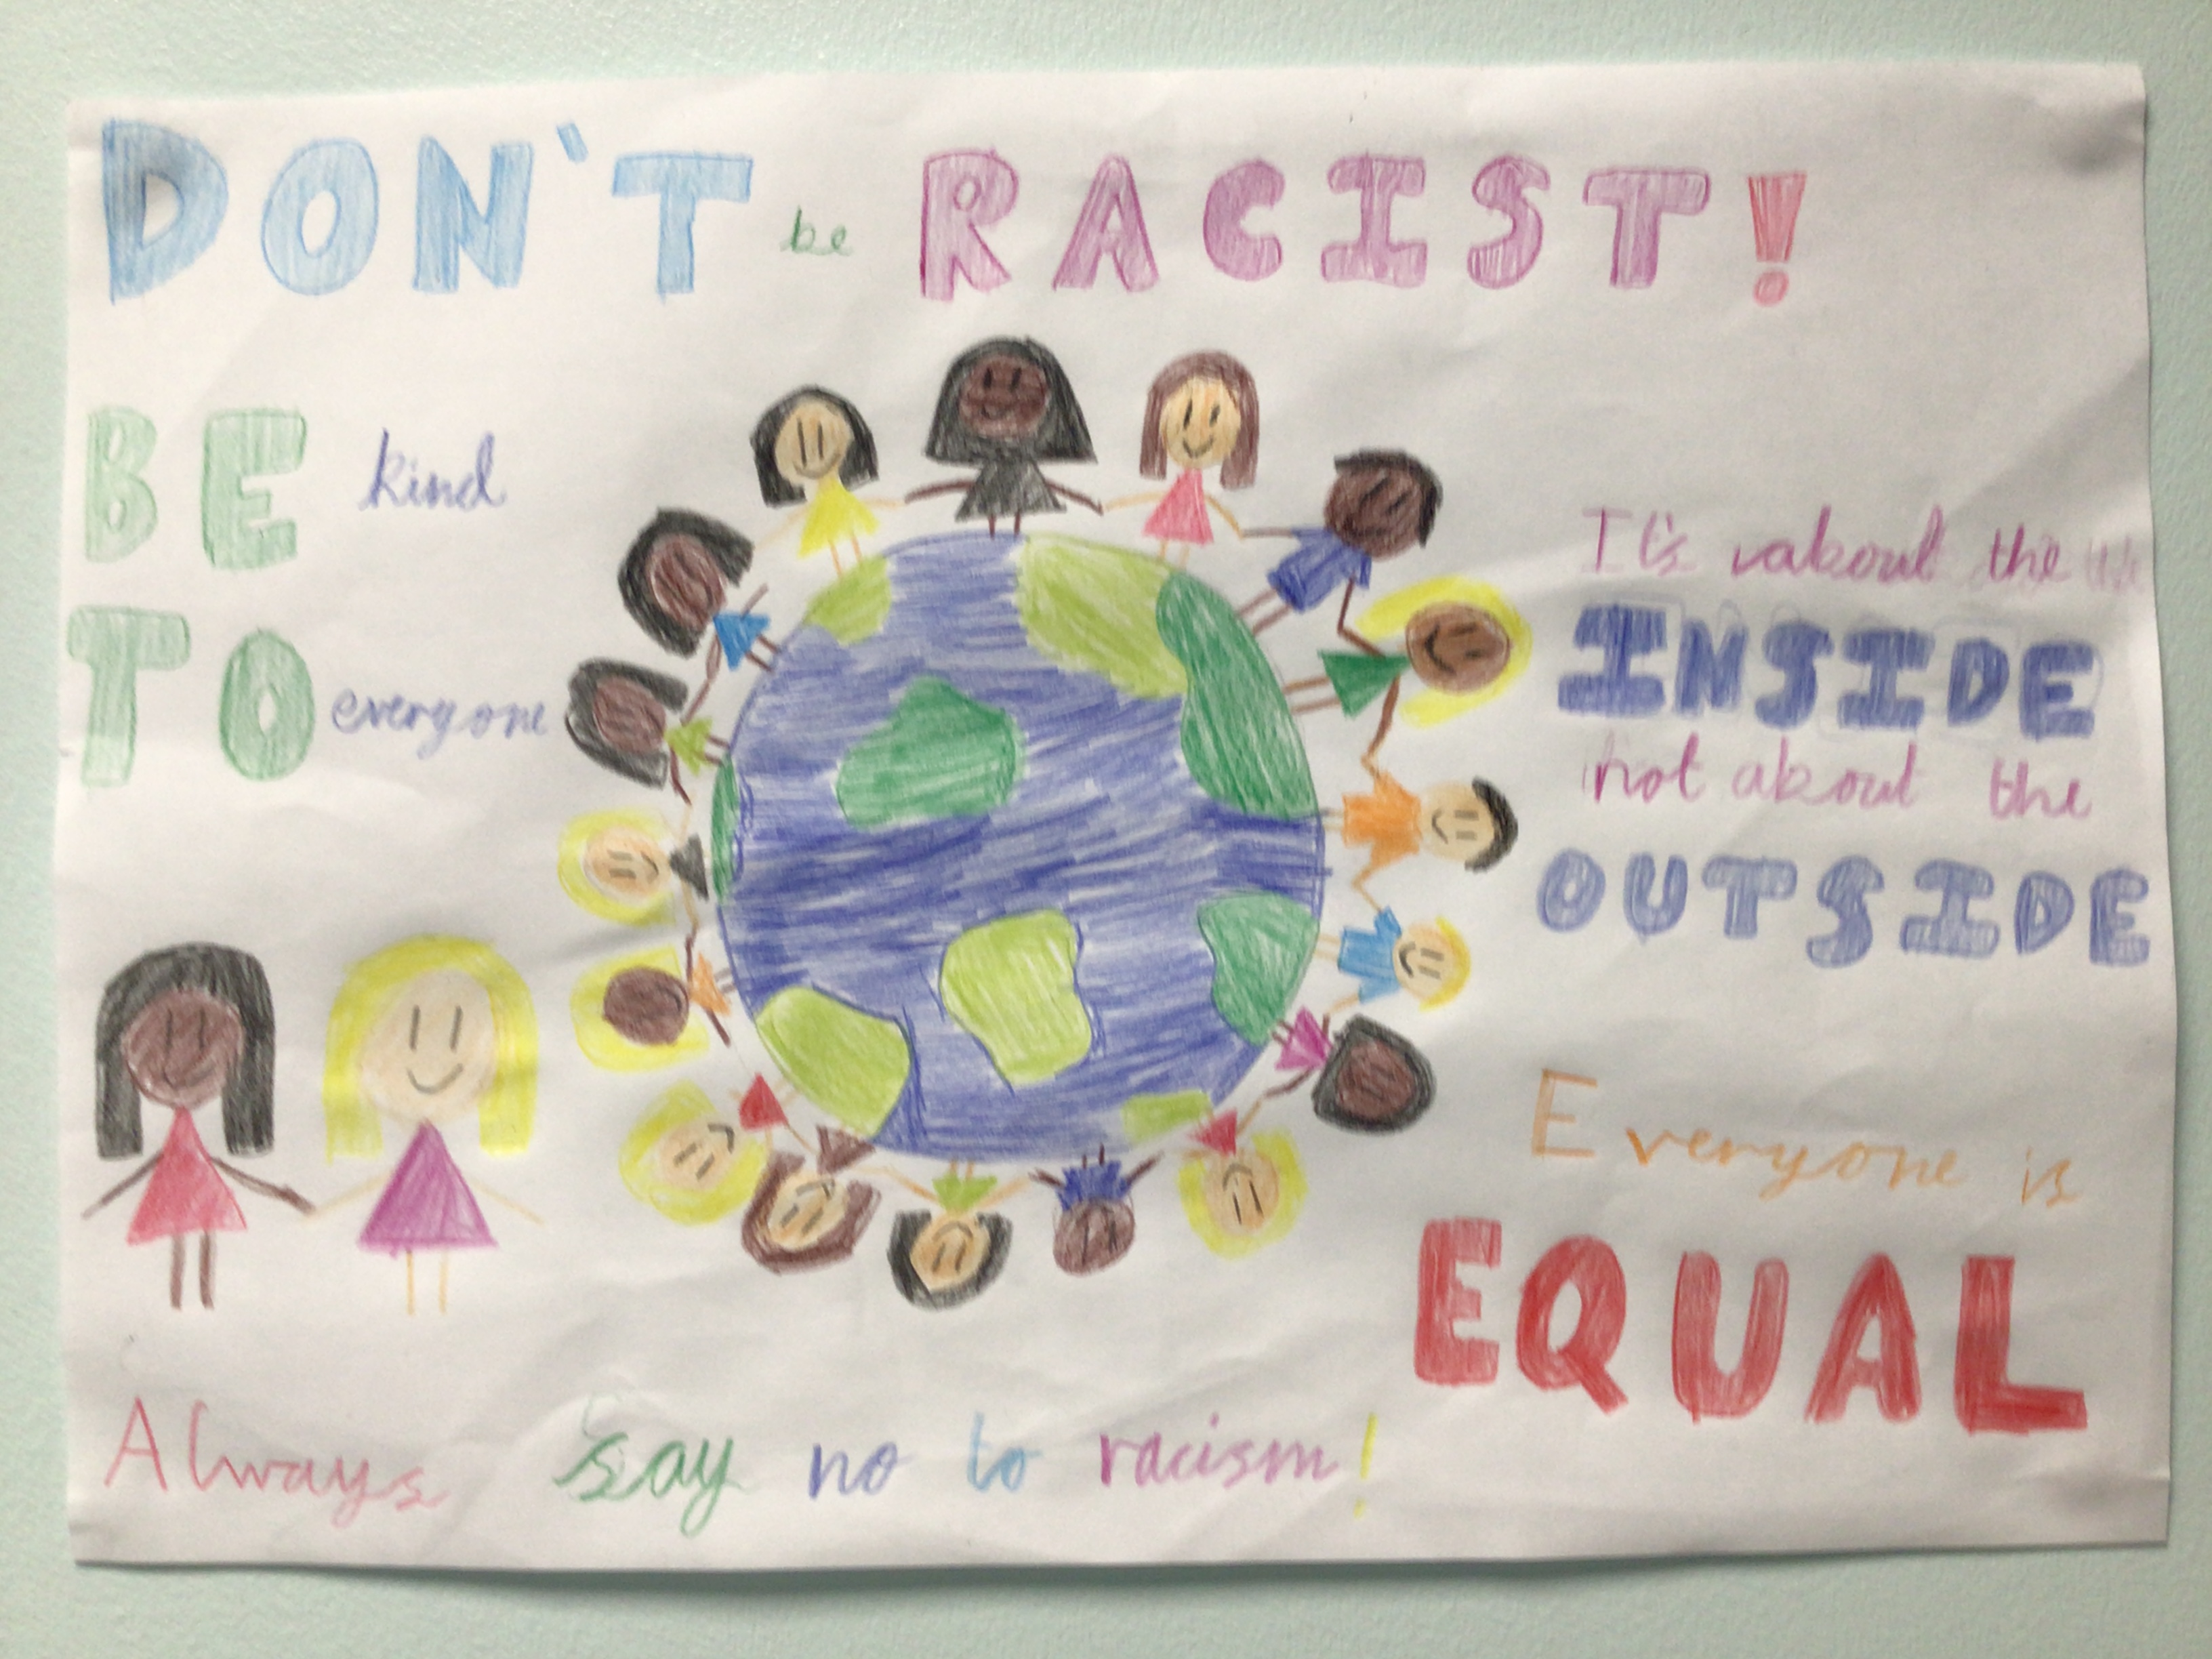 DON'T be RACIST!
BE kind
TO everyone
It's about the
INSIDE
not about the
OUTSIDE
Everyone is
EQUAL
Always say no to racism!